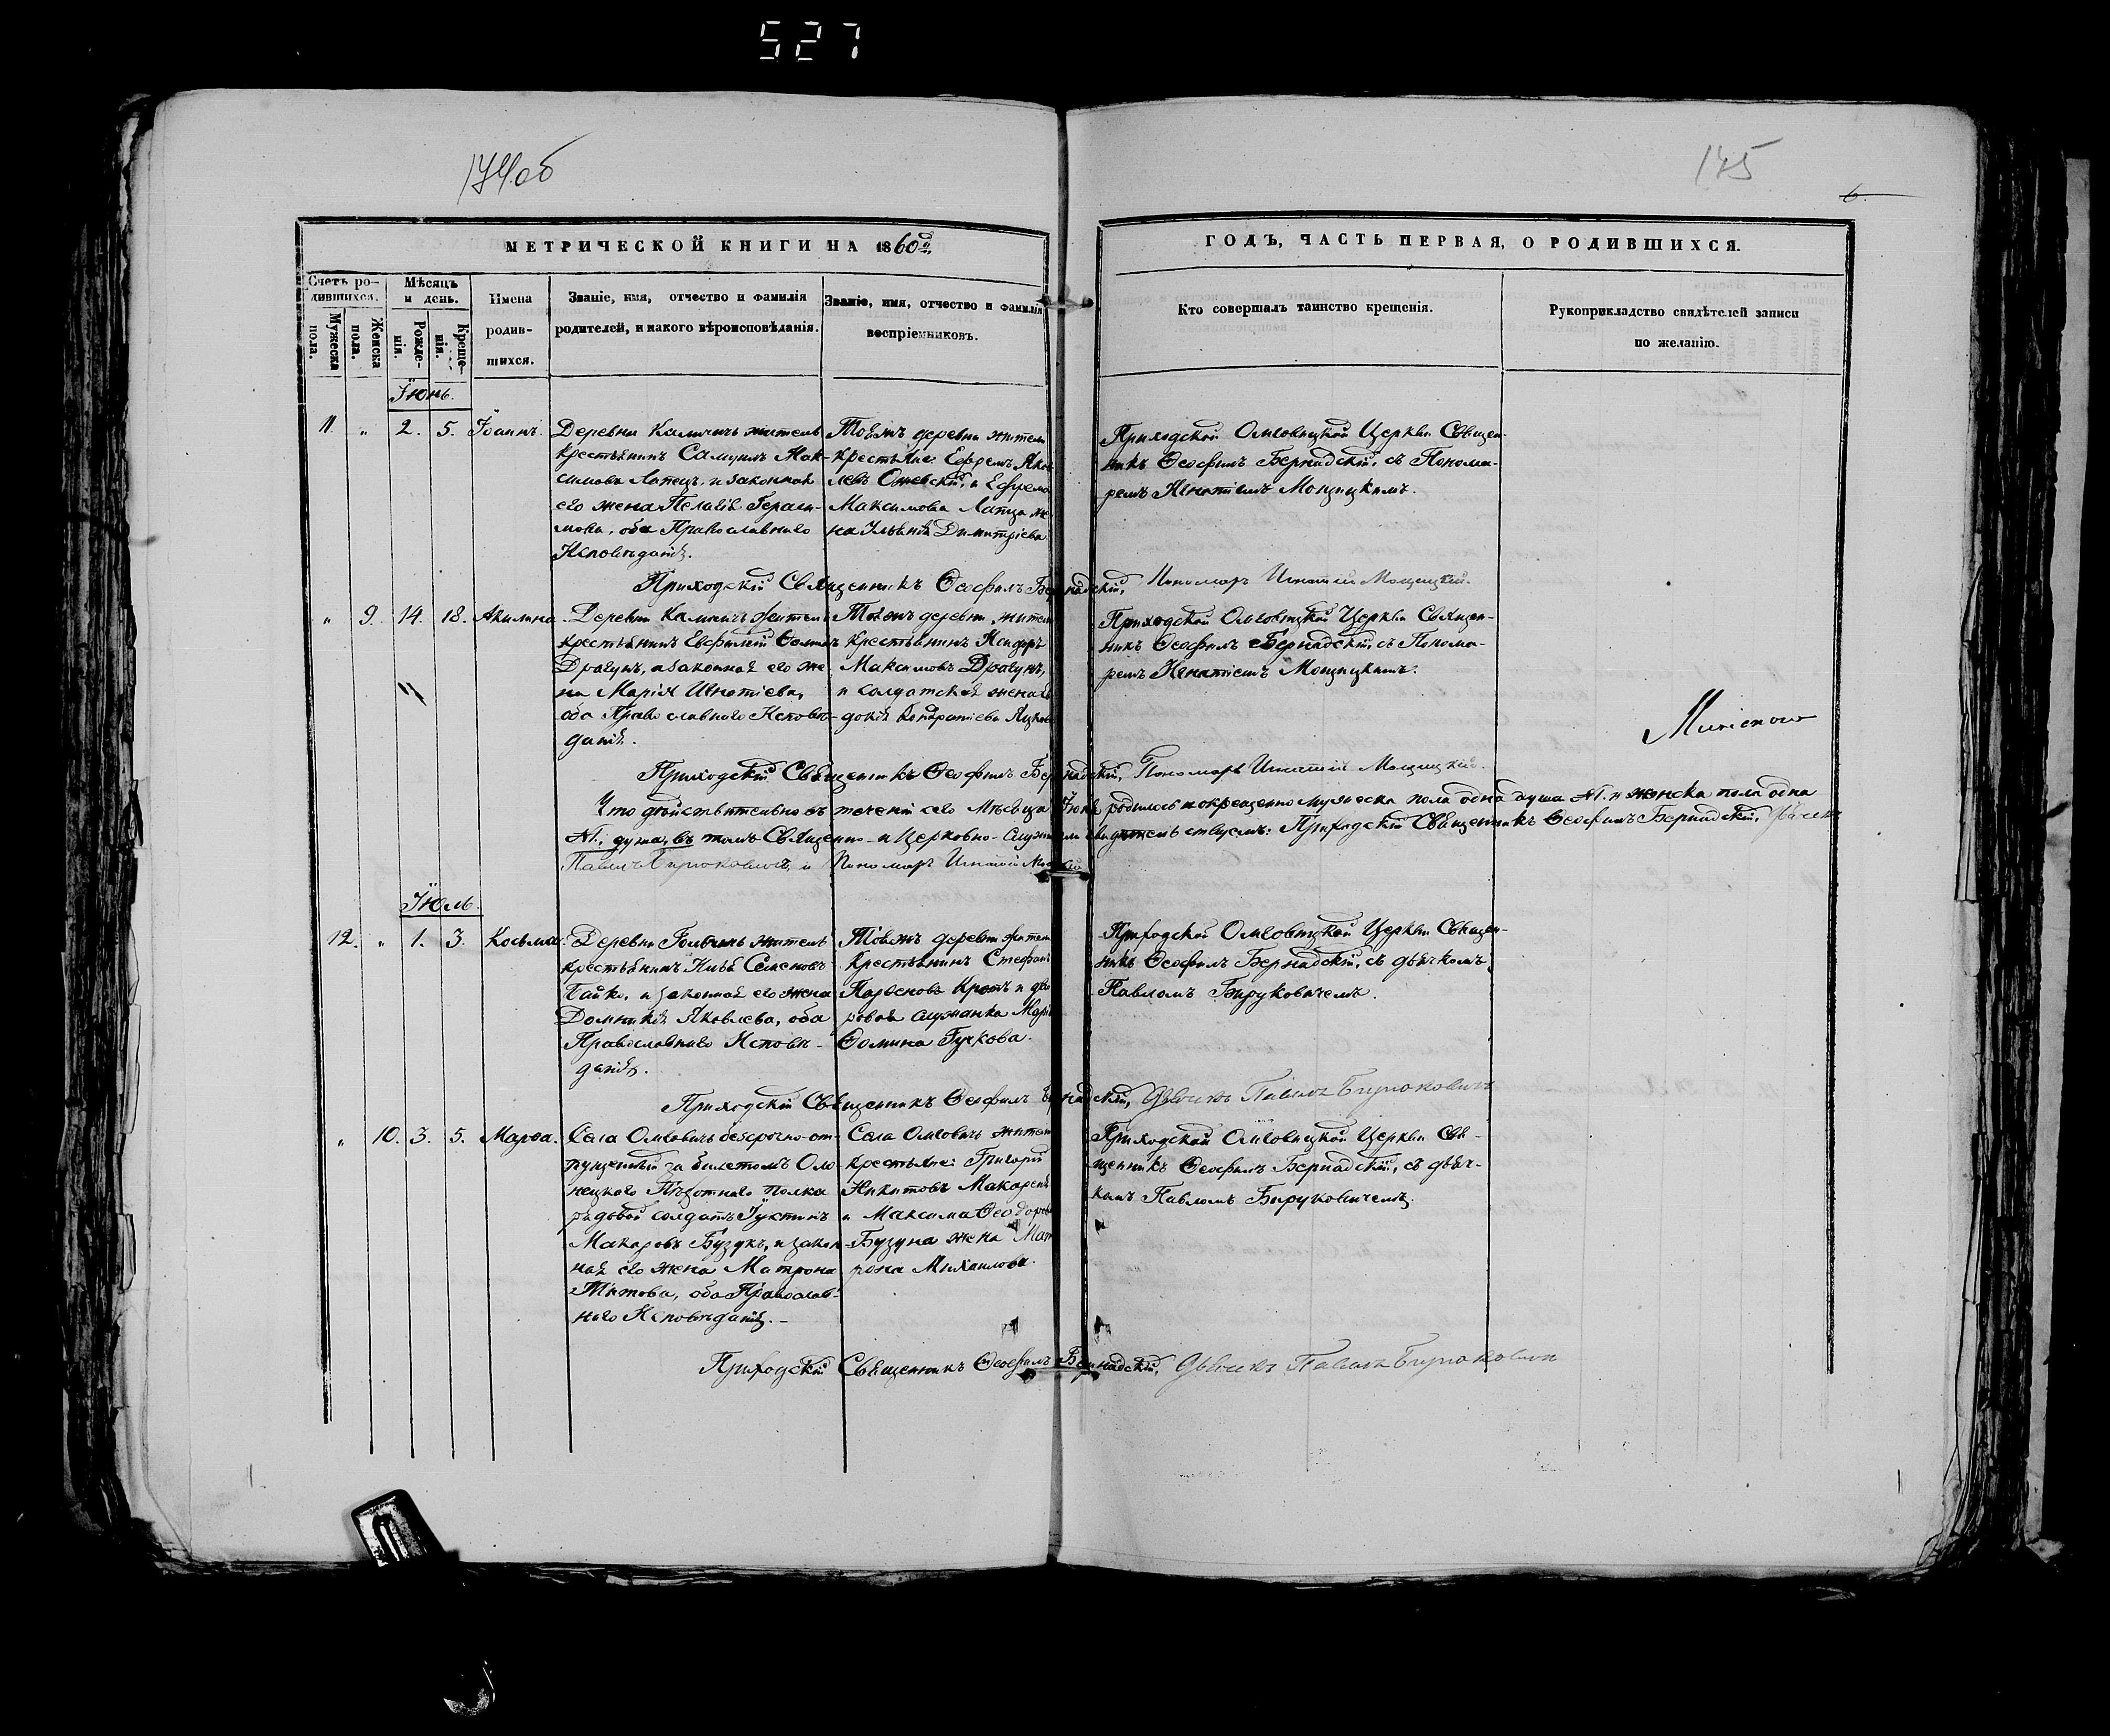 527
174об
175
6.
МЕТРИЧЕСКОЙ КНИГИ НА 1860й
ГОДЪ, ЧАСТЬ ПЕРВАЯ, О РОДИВШИХСЯ.
Счетъ ро-
дившихся.
Мужеска
пола.
Женска
пола.
Мѣсяцъ
и день.
Рожде-
нія.
Креще-
нія.
Имена
родив-
шихся.
Званіе, имя, отчество и фамилія
родителей, и какого вѣроисповѣданія.
Званіе, имя, отчество и фамилія
воспріемниковъ.
Кто совершалъ таинство крещенія.
Рукоприкладство свидѣтелей записи
по желанію.
Іюнь.
11. " 2. 5. Іоаннъ.
Деревни Каличичъ житель
крестьянинъ Самуилъ Мак-
симовъ Лапецъ, и законная
его жена Пелагія Гераси-
мова, оба Православнаго
Исповѣданія.
Тоежъ деревни жители
крестьяне: Ефремъ Яков
левъ и Ефрема
Максимова Лапца же
на Ульянія Димитріева
Приходской Омговицкой Церкви Священ-
никъ Ѳеофилъ Бернадскій, съ Понома-
ремъ Игнатіемъ Мощицкимъ.
Приходскій Священникъ Ѳеофилъ Бернадскій, Пономарь Игнатій Мощицкій.
" 9. 14. 18. Акилина.
Деревни Каличичъ житель
крестьянинъ Евфимій Ѳоминъ
Драгунъ, и законная его же
на Марія Игнатіева,
оба Православнаго Исповѣ-
данія.
Тоежъ деревни житель
крестьянинъ Исидоръ
Максимовъ Драгунъ,
и солдатская жена Ев
докія Кондратіева
Приходской Омговицкой Церкви Священ-
никъ Ѳеофилъ Бернадскій, съ Понома-
ремъ Игнатіемъ Мощицкимъ.
Приходскій Священникъ Ѳеофилъ Бернадскій, Пономарь Игнатій Мощицкій.
Что дѣйствительно въ теченіи сего Мѣсяца Іюня родилось и окрещенно мужеска пола одна душа №1. и женска пола одна
№1. душа, въ томъ Священно- и Церковно-служители свидѣтельствуемъ: Приходскій Священникъ Ѳеофилъ Бернадскій, Дьячекъ
Павелъ Бируковичъ, и Пономарь Игнатій
Іюль.
12. " 1. 3. Косьма.
Деревни житель
крестьянинъ Илья Семеновъ
и законная его жена
Домникія Яковлева, оба
Православнаго Исповѣ-
данія.
Тоежъ деревни житель
крестьянинъ Стефанъ
Парѳеновъ и дво
ровая служанка Марія
Ѳомина Гучкова.
Приходской Омговицкой Церкви Священ-
никъ Ѳеофилъ Бернадскій, съ дьячкомъ
Павломъ Бируковичемъ.
Приходскій Священникъ Ѳеофилъ Бернадскій, Дьячекъ Павелъ Бируковичъ
" 10. 3. 5. Марѳа.
Села Омговичъ безсрочно-от-
пущенный за билетомъ Оло
нецкаго Пѣхотнаго полка
рядовой солдатъ Іустинъ
Макаровъ Бузукъ, и закон
ная его жена Матрона
Титова, оба Православ-
наго Исповѣданія.
Села Омговичъ жители
крестьяне: Григорій
Никитовъ Макареня
и Максима Ѳеодорова
жена Мат
рона Михаилова.
Приходской Омговицкой Церкви Свя-
щенникъ Ѳеофилъ Бернадскій, съ дьяч-
комъ Павломъ Бируковичемъ.
Приходскій Священникъ Ѳеофилъ Бернадскій, Дьячекъ Павелъ Бируковичъ